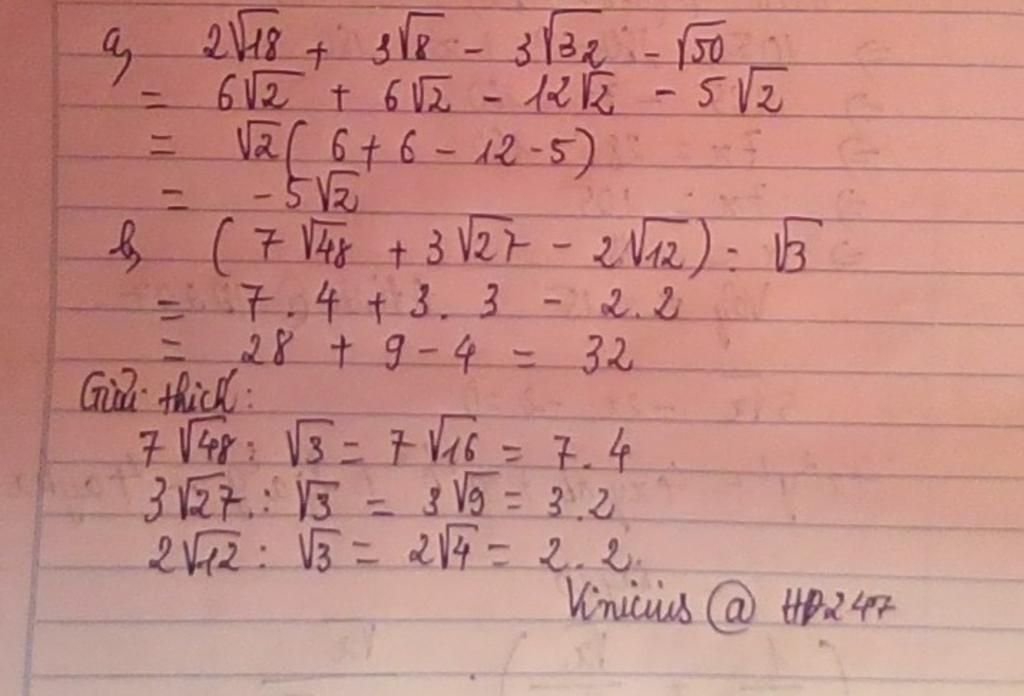 a, 2√18 + 3√8 - 3√32 - √50
= 6√2 + 6√2 - 12√2 - 5√2
= √2( 6 + 6 - 12 - 5)
= - 5√2
b, ( 7√48 + 3√27 - 2√12) : √3
= 7 . 4 + 3 . 3 - 2 . 2
= 28 + 9 - 4 = 32
Giải thích:
7√48 : √3 = 7√16 = 7 . 4
3√27 : √3 = 3√9 = 3 . 2
2√12 : √3 = 2√4 = 2 . 2
Vinicius @ HD247